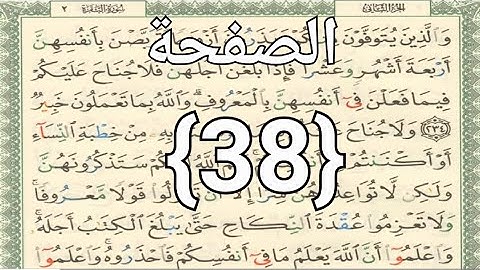 الجزء الثاني سورة البقرة ٢
الصفحة
{38}
وَالَّذِينَ يُتَوَفَّوْنَ بِأَنفُسِهِنَّ
أَرْبَعَةَ أَشْهُرٍ وَعَشْرًا فَإِذَا بَلَغْنَ أَجَلَهُنَّ فَلَا جُنَاحَ عَلَيْكُمْ
فِيمَا فَعَلْنَ فِيٓ أَنفُسِهِنَّ بِالْمَعْرُوفِ وَاللَّهُ بِمَا تَعْمَلُونَ خَبِيرٌ
﴿٢٣٤﴾ وَلَا جُنَاحَ بِهِ مِنْ خِطْبَةِ النِّسَآءِ
أَوْ أَكْنَنتُمْ اللَّهُ سَتَذْكُرُونَهُنَّ
وَلَٰكِن لَّا سِرًّا إِلَّآ أَن قَوْلًا مَّعْرُوفًا
وَلَا تَعْزِمُوا عُقْدَةَ النِّكَاحِ حَتَّىٰ يَبْلُغَ الْكِتَٰبُ أَجَلَهُۥ
وَاعْلَمُوٓا أَنَّ اللَّهَ يَعْلَمُ مَا فِيٓ أَنفُسِكُمْ فَاحْذَرُوهُ وَاعْلَمُوٓا